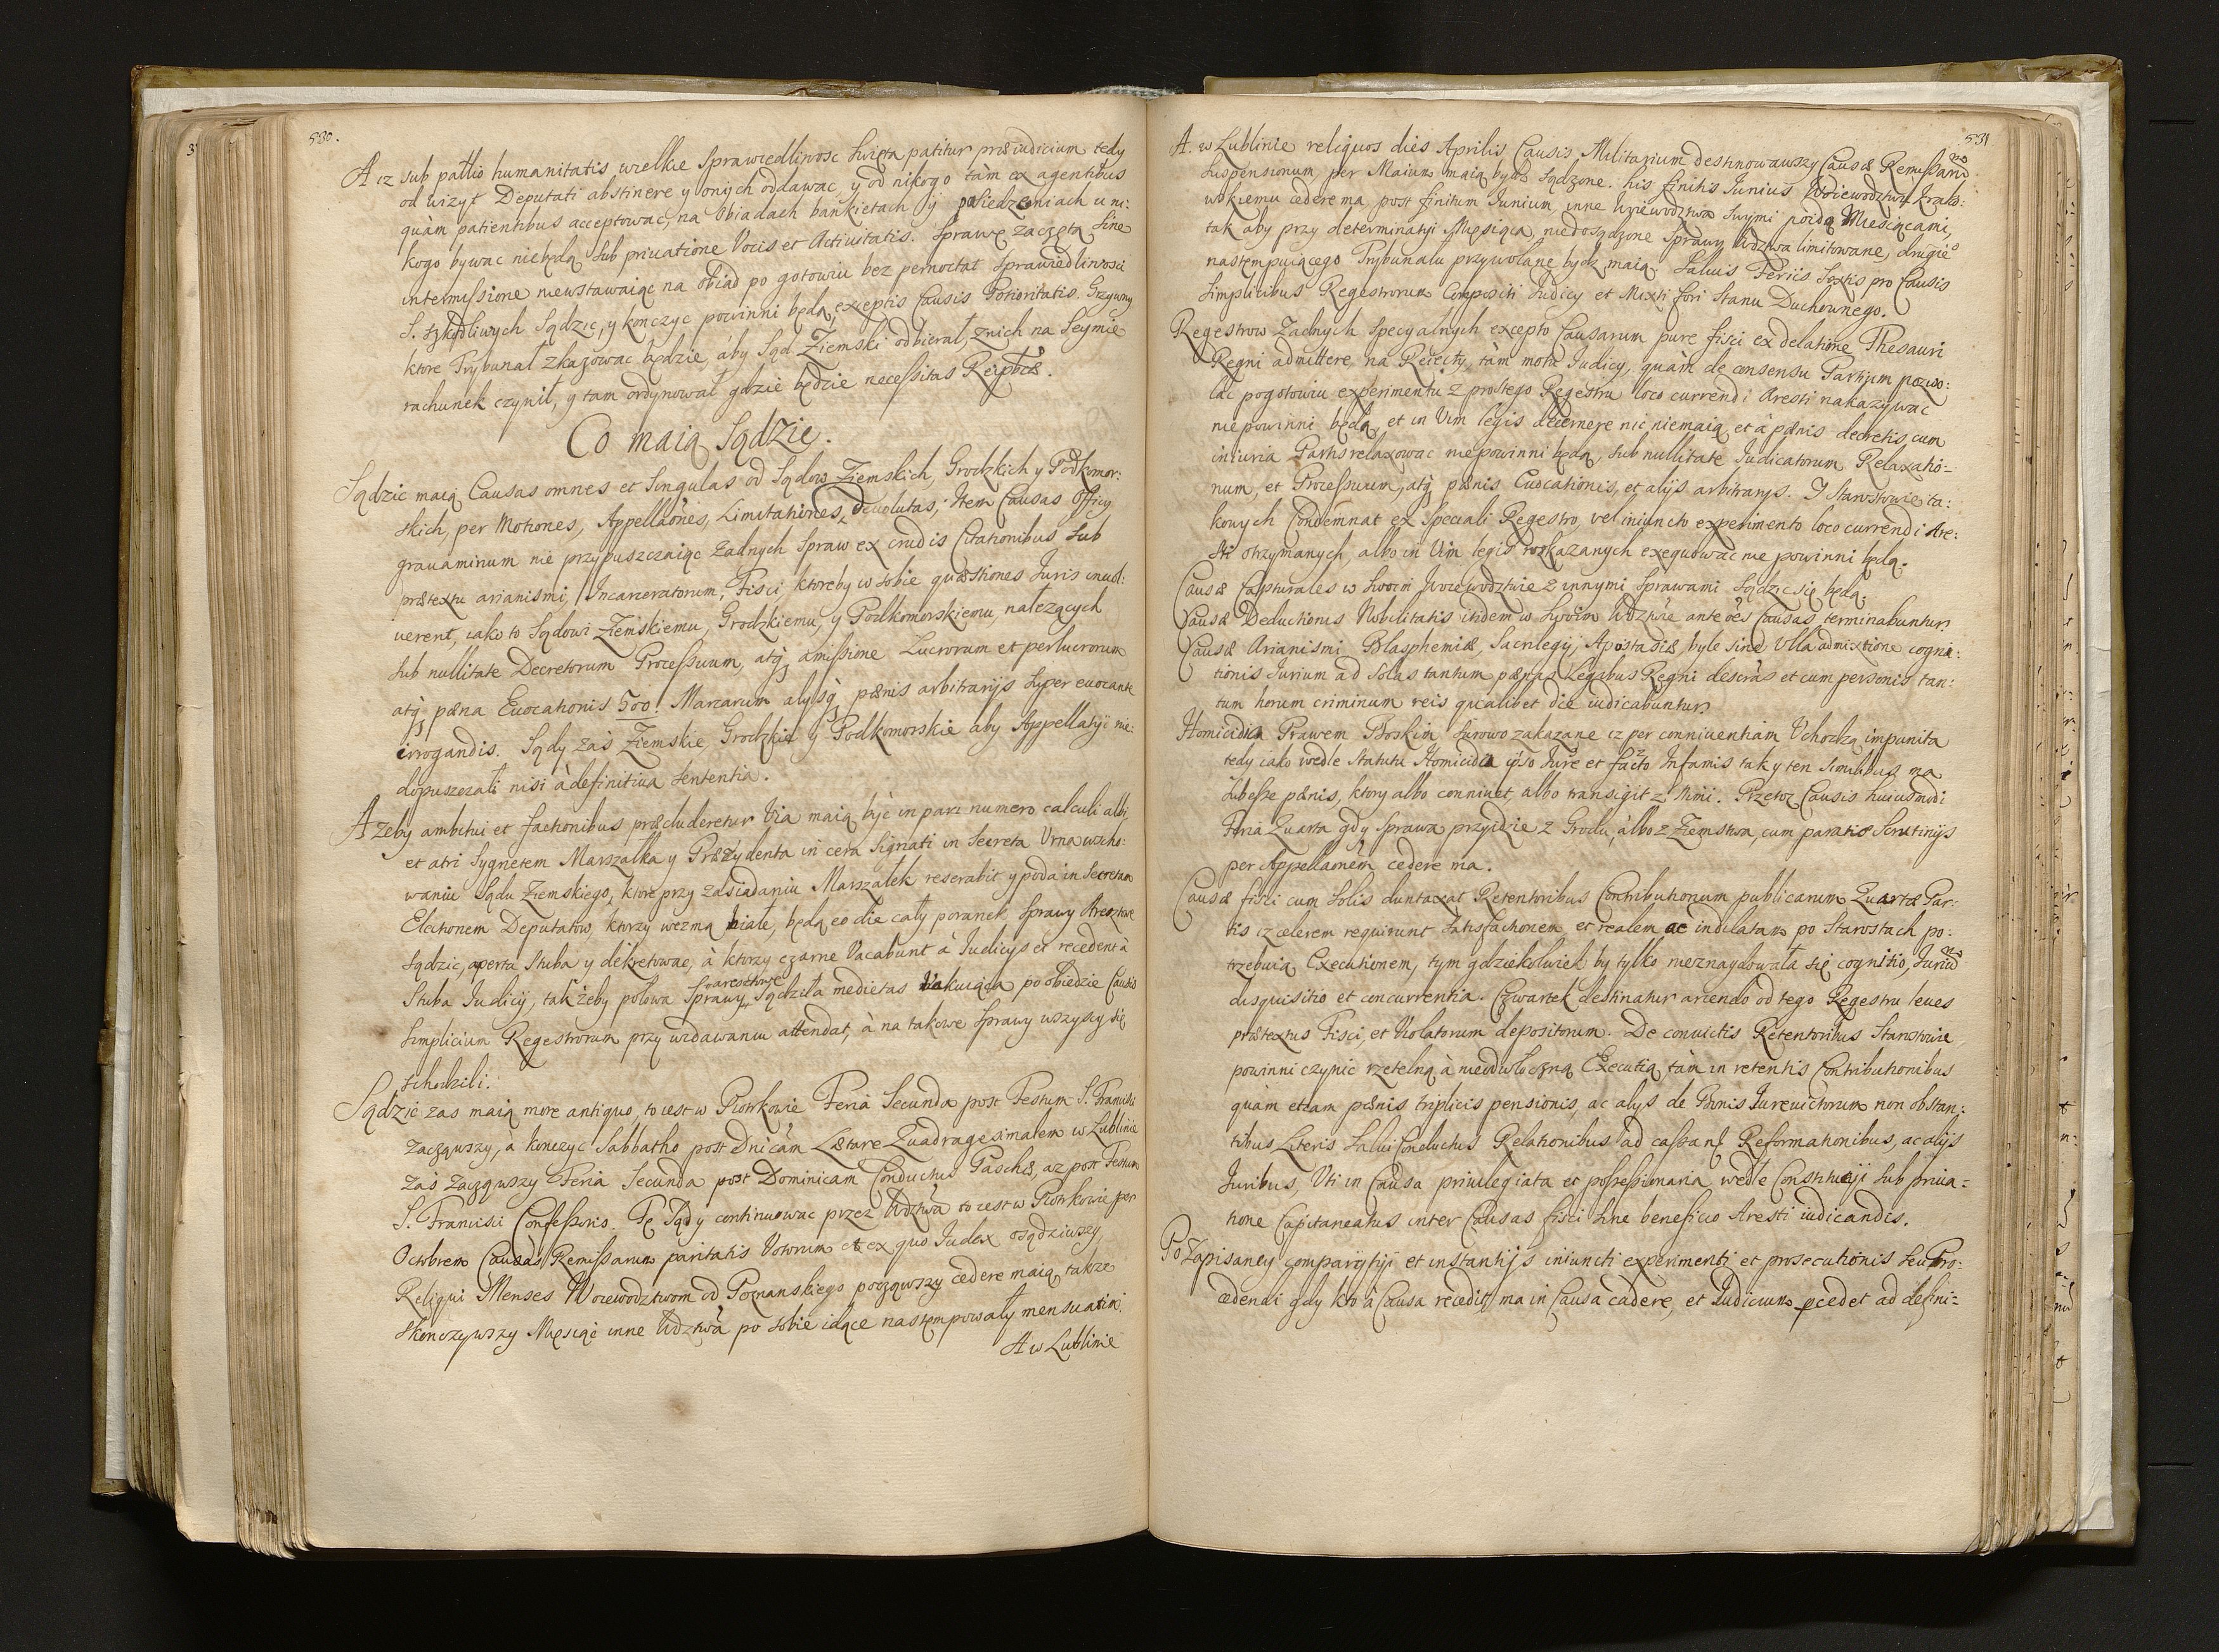 530.
A iz sub pallio humanitatis wielkie Sprawiedliwosc Swięta patitur præiudicium tedy
od wizyt Deputati abstinere y onych oddawac, y od nikogo tàm ex agentibus
quàm patientibus acceptowac, na Obiadach bankietach y posiedzeniach u ni:
kogo bywac niebędą sub priuatione Vocis et Actiuitatis. Sprawę zaczętą sine
intermissione niewstawaiąc na obiad po gotowiu bez pernoctat Sprawiedliwosci
S. szkodliwych Sądzic, y konczyc powinni będą, exceptis Causis Potioritatis. Grzywny
ktore Trybunał zkazowac będzie, aby Sąd Ziemski odbierał, znich na Seymie
rachunek czynił, y tam ordynował gdzie będzie necessitas Reipbcæ.
Co maią Sądzić.
Sądzic maią Causas omnes et Singulas od Sądow Ziemskich, Grodzkich y Podkomor:
skich, per Motiones, Appellaones, Limitationes, Devolutas; Item Causas Officÿ
grauaminum nie przypuszczaiąc Zadnych Spraw ex crudis Citationibus sub
prætextu arianismi, Incarceratorum, Fisci, ktoreby w sobie quæstiones Iuris inuol:
uerent, iako to Sądowi Ziemskiemu, Grodzkiemu, y Podkomorskiemu, należących
sub nullitate Decretorum Processuum, atq amissione Lucrorum et perlucrorum
atq pæna Euocationis 500. Marcarum alysq pænis arbitrarijs super euocante
irrogandis. Sądy zaś Ziemskie, Grodzkie y Podkomorskie aby Appellatyi nie:
dopuszczali nisi à definitiua sententia.
A zeby ambitui et factionibus præcluderetur Via maią być in pari numero calculi albi,
et atri Sygnetem Marszałka y Præzydenta in cera Signati in Secreta Vrna uscho:
waniu Sądu Ziemskiego, ktore przy zasiadaniu Marszałek reserabit y poda in Secretam
Electionem Deputatow, ktorzy wezmą białe, będą eo die cały poranek Sprawy Aresztwe
Sądzic, aperta Stuba y dekretowac, à ktorzy czarne Vacabunt à Iudicijs et recedent à
Stuba Iudicÿ, tak żeby połowa Sprawy aresztwe Sądziła medietas Vakuiąca po obiedzie Causis
Simplicium Regestrorum przy wzdawaniu attendat, à na takowe Sprawy wszyscy się
schodzili.
Sądzic zas maią more antiquo, to iest w Piotrkowie Feria Secunda post Festum S. Francisci
Zacząwszy, a konczyc Sabbatho post Dnicam Lætare Quadragesimalem w Lublinie
zaś zacząwszy Feria Secunda post Dominicam Conductus Paschæ, az post Festum
S. Francisci Confessoris. Te Sądy continuowac przez Wdztwa to iest w Piotrkowie per
Octobrem Causas Remissarum paritatis Votorum et ex quo Iudex osądziwszy,
Reliqui Menses Woiewodztwom od Poznanskiego począwszy cedere maią, także
skonczywszy Miesiąc inne Wdztwa po sobie idące następowały mensuatim.
A w Lublinie
531
A. w Lublinie reliquos dies Aprilis Causis Militarium destinowawszy Causæ Remissarum
Suspensionum per Maium maią bydz Sądzone. his finitis Iunius Woiewodztwu Krako:
wskiemu cedere ma, post finitum Iunium inne woiewodztwa Swymi poidą Miesiącami,
tak aby przy determinatyi Miesiąca, niedosądzone Sprawy Wdztwa limitowane, drugiego
następuiącego Trybunału przywołane bydz maią. Saluis Feriis Sextis pro Causis
Simplicibus Regestrorum Compositi Iudicÿ et Mixti fori Stanu Duchownego.
Regestrow Zadnych Specyalnych excepto Causarum pure fisci ex delatione Thesauri
Regni admittere, na Reiecty, tàm motu Iudicÿ, quàm de consensu Partium pozwo:
lać pogotowiu experimentu z prostego Regestru loco currendi Aresti nakazywac
niepowinni będą, et in Vim legis decernere nic niemaią, et à pænis decretis cum
iniuria Partis relaxowac niepowinni będą, sub nullitate Iudicatorum Relaxatio=
num, et Processuum, atq pænis Euocationis, et alijs arbitrarys. I Starostowie ta:
kowych Condemnat ex Speciali Regestro, vel iniuncto experimento loco currendi Are:
sti otrzymanych, albo in Vim legis wskazanych exequowac nie powinni będą.
Causæ Capturales w Swoim Woiewodztwie z innymi Sprawami Sądzic się będą.
Causæ Deductionis Nobilitatis itidem w Swoim Wdztwie ante oes Causas terminabuntur.
Causæ Arianismi Blasphemiæ, Sacrilegÿ, Apostasiæ, byle sine Vlla admixtione cogni:
tionis Iurium ad Solas tantum pænas Legibus Regni descras et cum personis tan:
tum horum criminum reis qualibet die iudicabuntur.
Homicidia Prawem Boskim Surowo zakazane iz per conniuentiam Vchodzą impunita
tedy iako wedle Statutu Homicida ipso Iure et facto Infamis tak y ten similibus ma
Subesse pænis, ktory albo conniuet, albo transigit z nimi. Przetoz Causis huiusmodi
Feria Quarta gdy Sprawa przyidzie z Grodu, albo z Ziemstwa, cum paratis Scrutinijs
per Appellaonem cedere ma.
Causæ fisci cum Solis duntaxat Retentoribus Contributionum publicarum Quartæ Par:
tis iz celerem requirunt Satisfactionem et realem ac indilatam po Starostach po:
trzebuią Executionem, tym gdziekolwiek by tylko nieznaydowała się cognitio, Iurium
disquisitio et concurrentia. Czwartek destinatur arcendo od tego Regestru leues
prætextus Fisci, et Violatorum depositorum. De conuictis Retentoribus Starostowie
powinni czynic rzetelną à nieodwłoczną Executią tàm in retentis Contributionibus
quàm etiam pænis triplicis pensionis, ac alys de Bonis Iureuictorum non obstan:
tibus Literis Salui Conductus Relationibus ad cassand Reformationibus, ac alijs
Iuribus, Vti in Causa priuilegiata et possessionaria wedle Constitucyi sub priua=
tione Capitaneatus inter Causas fisci sine beneficio Aresti iudicandis.
Po Zapisaney comparytyi et instantijs iniuncti experimenti et prosecutionis seu Pro:
cedendi gdy kto à Causa recedit, ma in Causa cadere, et Iudicium pcedet ad defini=